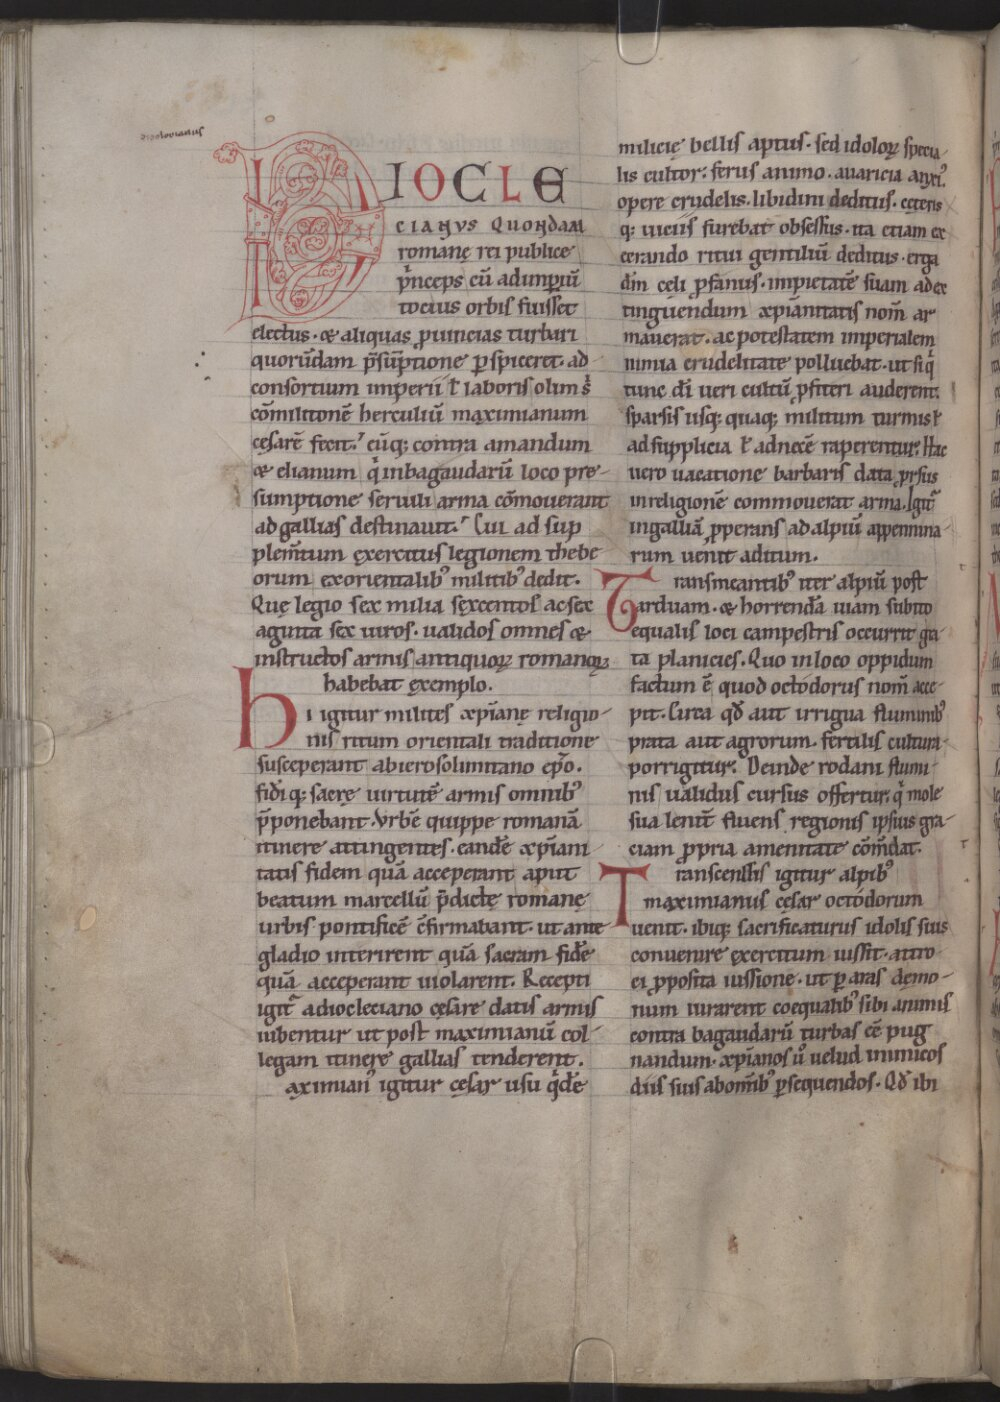 dyoclecianus
DIOCLE
CIANUS QUONDAM
romanę rei publicę
p̄nceps cū ad imp̄iū
tocius orbis fuisset
electus· & aliquas ꝓuincias turbari
quorūdam p̄sūptione ꝑspiceret· ad
consortium imperii ł laboris olim s̄
cōmilitonē herculiū maximianum
cęsarē fecit; cūq; contra amandum
& elianum q̄ inbagaudarū loco pre-
sumptione seruili arma cōmouerant
ad gallias destinauit; Cui ad sup
plem̄tum exercitus legionem thebe
orum exorientalibꝰ militibꝰ dedit.
Quę legio sex milia sexcentos ac sex
aginta sex uiros· ualidos omnes &
instructos armis antiquoꝝ romanoꝝ
habebat exemplo.
Hi igitur milites xp̄ianę religio-
nis ritum orientali traditione
susceperant abierosolimitano ep̄o.
fidi q; sacrę uirtutē armis omnibꝰ
p̄ponebant· Vrbē quippe romanā
itinere attingentes· eandē xp̄iani
tatis fidem quā acceperant aput
beatum marcellū p̄dictę romanę
urbis pontificē c̄firmabant· ut ante
gladio interirent quā sacram fidē
quā acceperant uiolarent. Recepti
igit̄ adiocleciano cęsare datis armis
iubentur ut post maximianū col-
legam itinere gallias tenderent.
aximianꝰ igitur cęsar usu q̄dē
milicię bellis aptus· sed idoloꝝ specia-
lis cultor; ferus animo· auaricia anxiꝰ.
opere crudelis· libidini deditus· cęteris
q; uiciis furebat obsessus· ita etiam ex
cerando ritui gentiliū deditus· erga
dn̄m celi ꝓfanus· impietatē suam adex
tinguendum xp̄ianitatis nom̄ ar
mauerat· ac potestatem imperialem
nimia crudelitate polluebat· ut siq̄
tunc dī ueri cultū ꝓfiteri auderent;
sparsis usq; quaq; militum turmis ł
ad supplicia ł ad necē raperentur; Hac
uero uacatione barbaris data ꝓrsus
in religionē commouerat arma. Igit̄
in galliā ꝓperans ad alpiū appennina-
rum uenit aditum.
Transmeantibꝰ iter alpiū post
arduam· & horrendā uiam subito
equalis loci campestris occurrit gra-
ta planicies. Quo in loco oppidum
factum ē quod octodorus nom̄ acce-
pit. Circa qd̄ aut irrigua fluminibꝰ
prata aut agrorum· fertilis cultura
porrigitur; Deinde rodani flumi-
nis ualidus cursus offertur; q̄ mole
sua lenit̄ fluens regionis ipsius gra-
ciam ꝓpria amenitate cōm̄dat.
Transcensis igitur alpibꝰ
maximianus cęsar octodorum
uenit· ibiq; sacrificaturus idolis suis
conuenire exercitum iussit· atro-
ci ꝓposita iussione· ut ꝑ aras dęmo-
num iurarent coequalibꝰ sibi animis
contra bagaudarū turbas ēē pug
nandum· xp̄ianos ū uelud inimicos
diis suis abom̄ibꝰ ꝑsequendos· Qd̄ ibi